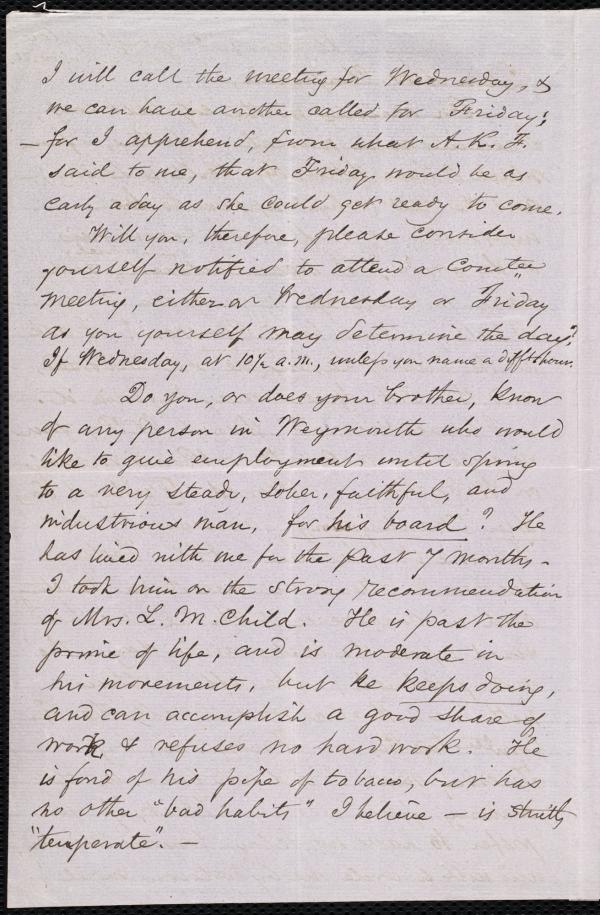 I will call the meeting for Wednesday, &
we can have another called for Friday;
— for I apprehend, from what A. K. F.
said to me, that Friday would be as
early a day as she could get ready to come.
Will you, therefore, please consider
yourself notified to attend a Comtee
meeting, either on Wednesday or Friday
as you yourself may determine the day?
If Wednesday, at 10½ a.m., unless you name a difft hour.
Do you, or does your brother, know
of any person in Weymouth who would
like to give employment until spring
to a very steady, sober, faithful, and
industrious man, for his board? He
has lived with me for the past 7 months.
I took him on the strong recommendation
of Mrs. L. M. Child. He is past the
prime of life, and is moderate in
his movements, but he keeps doing,
and can accomplish a good share of
work & refuses no hard work. He
is fond of his pipe of tobacco, but has
no other "bad habits" I believe — is strictly
"temperate". —